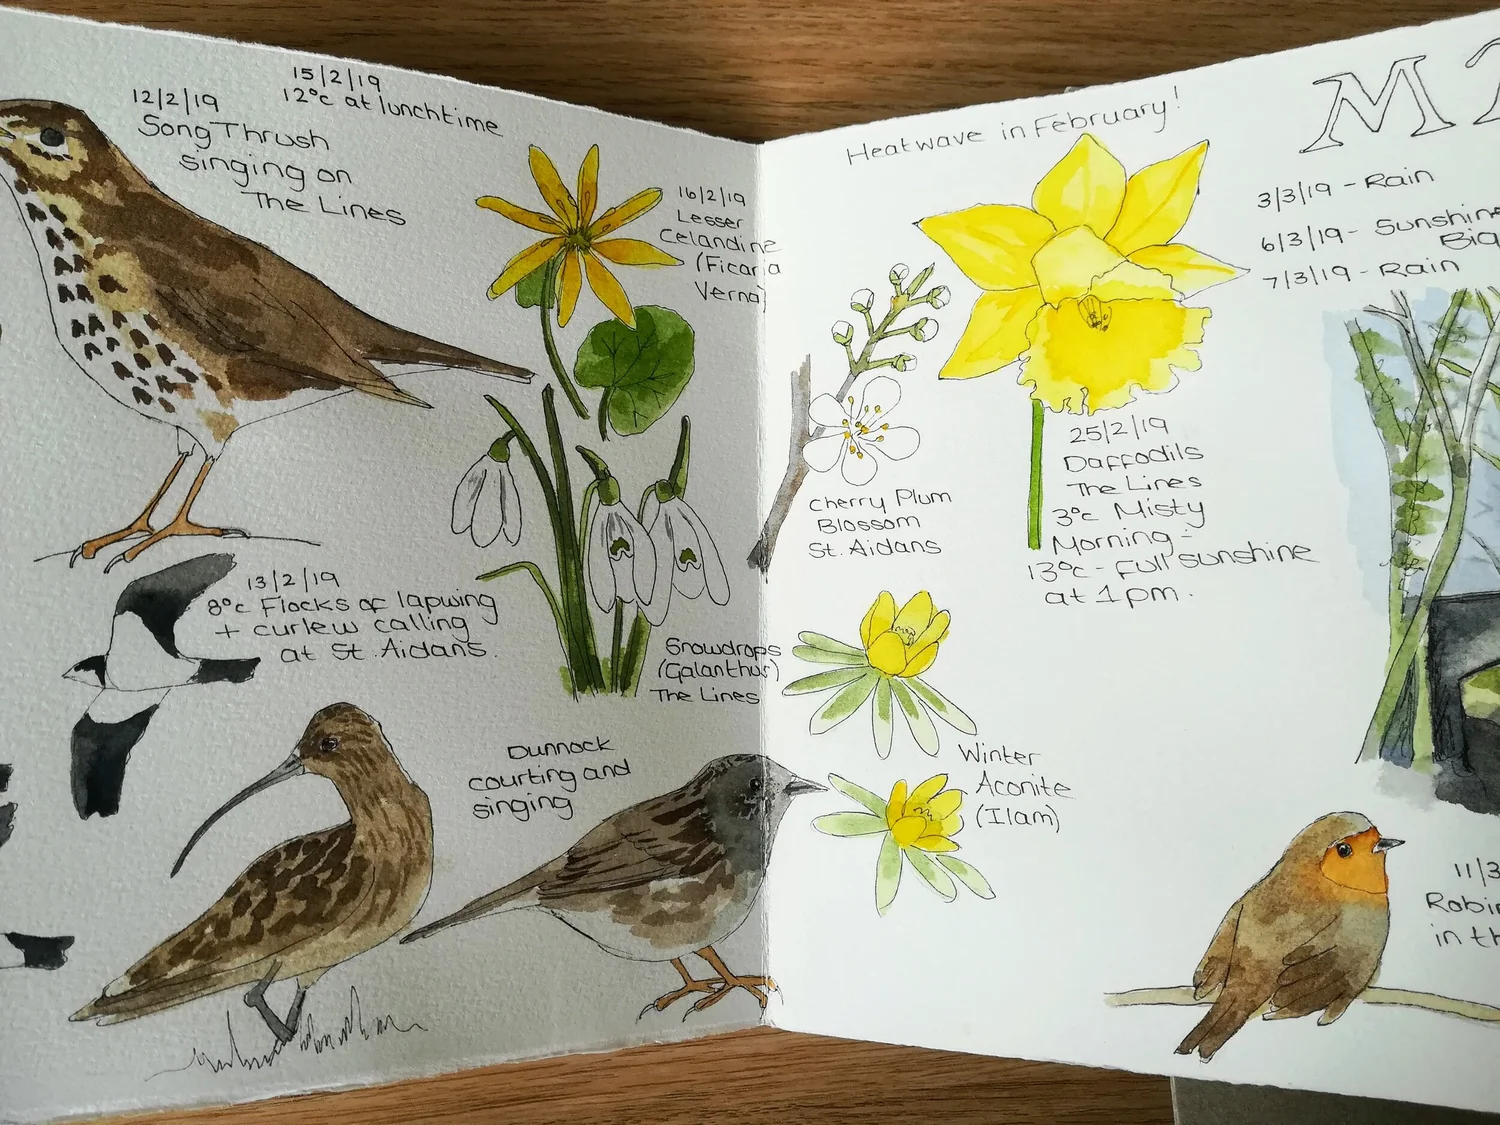 15/2/19
12°c at lunchtime
12/2/19
Song Thrush
singing on
The Lines
16/2/19
Lesser
Celandine
(Ficaria
Verna)
13/2/19
8°c Flocks of lapwing
+ curlew calling
at St. Aidans.
Snowdrops
(Galanthus)
The Lines
Dunnock
courting and
singing
Heatwave in February!
Cherry Plum
Blossom
St. Aidans
25/2/19
Daffodils
The Lines
3°c Misty
Morning -
13°c - Full sunshine
at 1pm.
Winter
Aconite
(Ilam)
3/3/19 - Rain
6/3/19 - Sunshine
7/3/19 - Rain